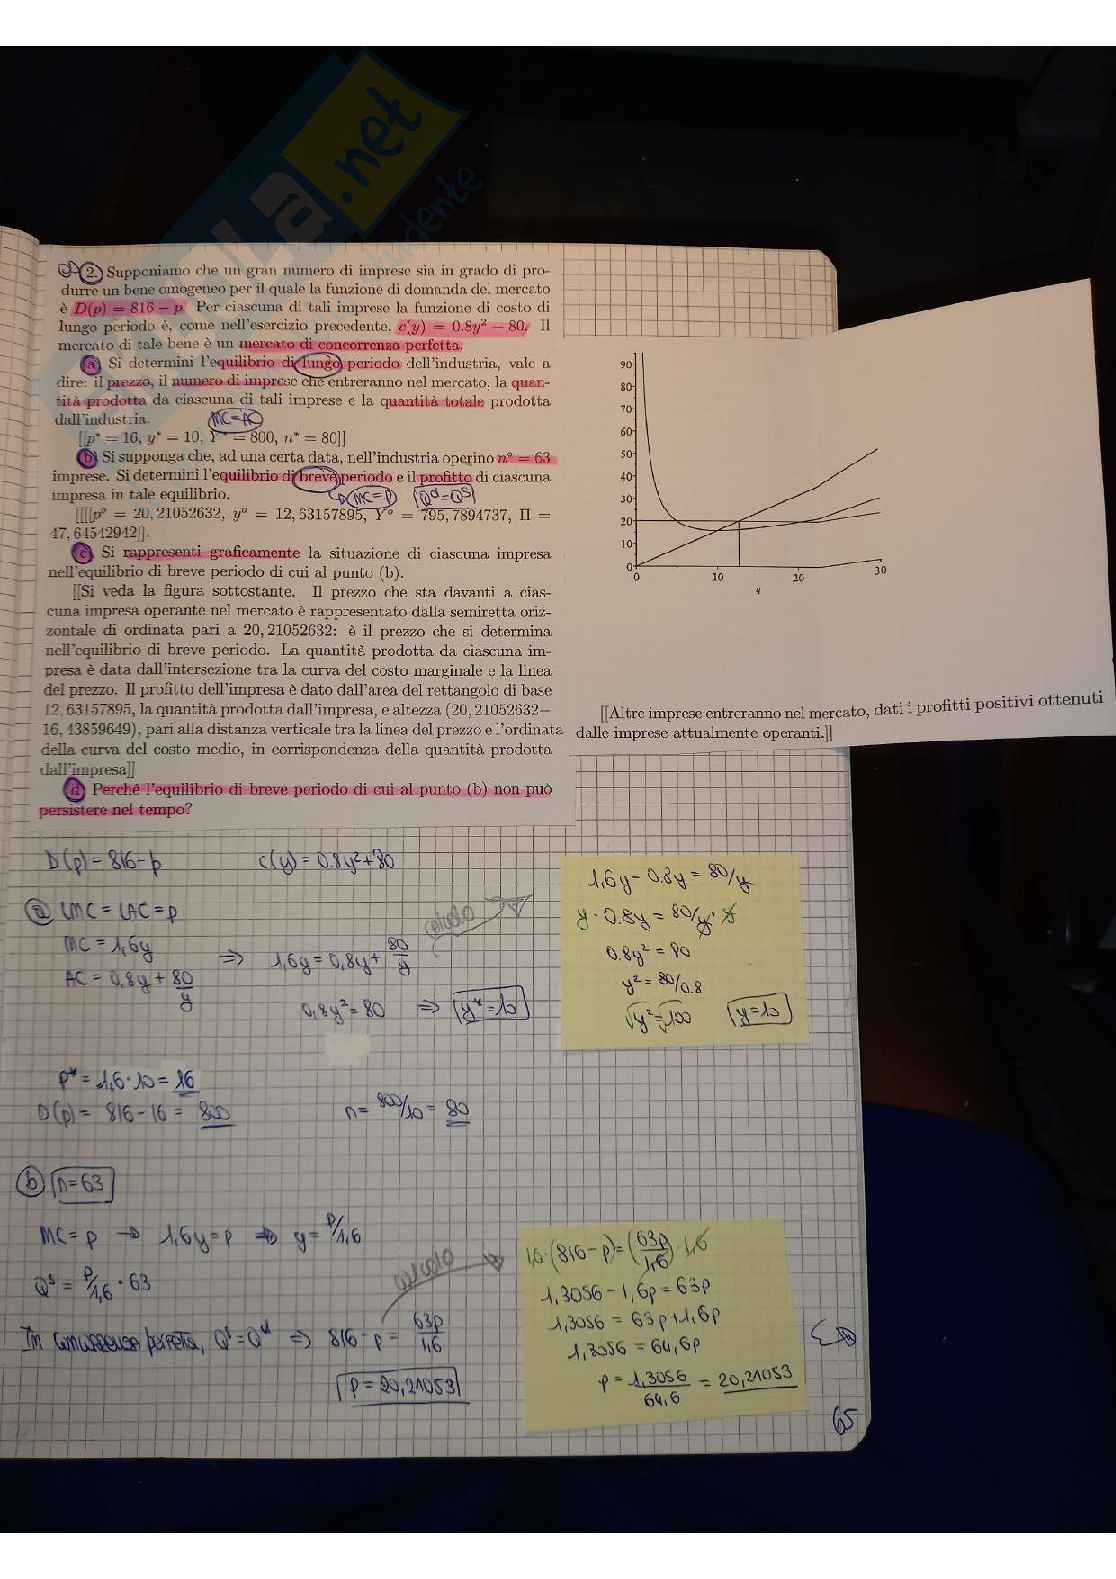 .net
2. Supponiamo che un gran numero di imprese sia in grado di pro-
durre un bene omogeneo per il quale la funzione di domanda de. mercato
è D(p) = 816 − p. Per ciascuna di tali imprese la funzione di costo di
lungo periodo è, come nell'esercizio precedente, c(y) = 0.8y² − 80. Il
mercato di tale bene è un mercato di concorrenza perfetta.
a Si determini l'equilibrio di lungo periodo dell'industria, vale a
dire: il prezzo, il numero di imprese che entreranno nel mercato, la quan-
tità prodotta da ciascuna di tali imprese e la quantità totale prodotta
dall'industria.
MC=AC
[[p* = 16, y* − 10, Y* = 800, n* = 80]]
b Si supponga che, ad una certa data, nell'industria operino n° = 63
imprese. Si determini l'equilibrio di breve periodo e il profitto di ciascuna
impresa in tale equilibrio.
MC=P
Qd=QS
[[[[p° = 20,21052632, y° = 12,63157895, Y° = 795,7894737, Π =
47,64542942]].
c Si rappresenti graficamente la situazione di ciascuna impresa
nell'equilibrio di breve periodo di cui al punto (b).
[[Si veda la figura sottostante. Il prezzo che sta davanti a cias-
cuna impresa operante nel mercato è rappresentato dalla semiretta oriz-
zontale di ordinata pari a 20,21052632: è il prezzo che si determina
nell'equilibrio di breve periodo. La quantità prodotta da ciascuna im-
presa è data dall'intersezione tra la curva del costo marginale e la linea
del prezzo. Il profitto dell'impresa è dato dall'area del rettangolo di base
12,63157895, la quantità prodotta dall'impresa, e altezza (20,21052632−
16,43859649), pari alla distanza verticale tra la linea del prezzo e l'ordinata
della curva del costo medio, in corrispondenza della quantità prodotta
dall'impresa]]
d Perché l'equilibrio di breve periodo di cui al punto (b) non può
persistere nel tempo?
90
80
70
60
50
40
30
20
10
0
0 10 20 30
y
[[Altre imprese entreranno nel mercato, dati i profitti positivi ottenuti
dalle imprese attualmente operanti.]]
D(p) = 816-p
C(y) = 0.8y²+80
a LMC = LAC = p
MC = 1,6y
AC = 0,8y + 80/y
⇒ 1,6y = 0,8y + 80/y
calcolo
0,8y² = 80 ⇒ y* = 10
1,6y - 0.8y = 80/y
y · 0.8y = 80/y · y
0.8y² = 80
y² = 80/0.8
√y² = √100
y = 10
p* = 1,6 · 10 = 16
D(p) = 816 - 16 = 800
n = 800/10 = 80
b n=63
MC = p → 1,6y = p ⇒ y = p/1,6
QS = p/1,6 · 63
calcolo
In concorrenza perfetta, QS = Qd ⇒ 816 - p = 63p/1,6
p = 20,21053
1,6 · (816 - p) = (63p/1,6) · 1,6
1,3056 - 1,6p = 63p
1,3056 = 63p + 1,6p
1,3056 = 64,6p
p = 1,3056/64,6 = 20,21053
65